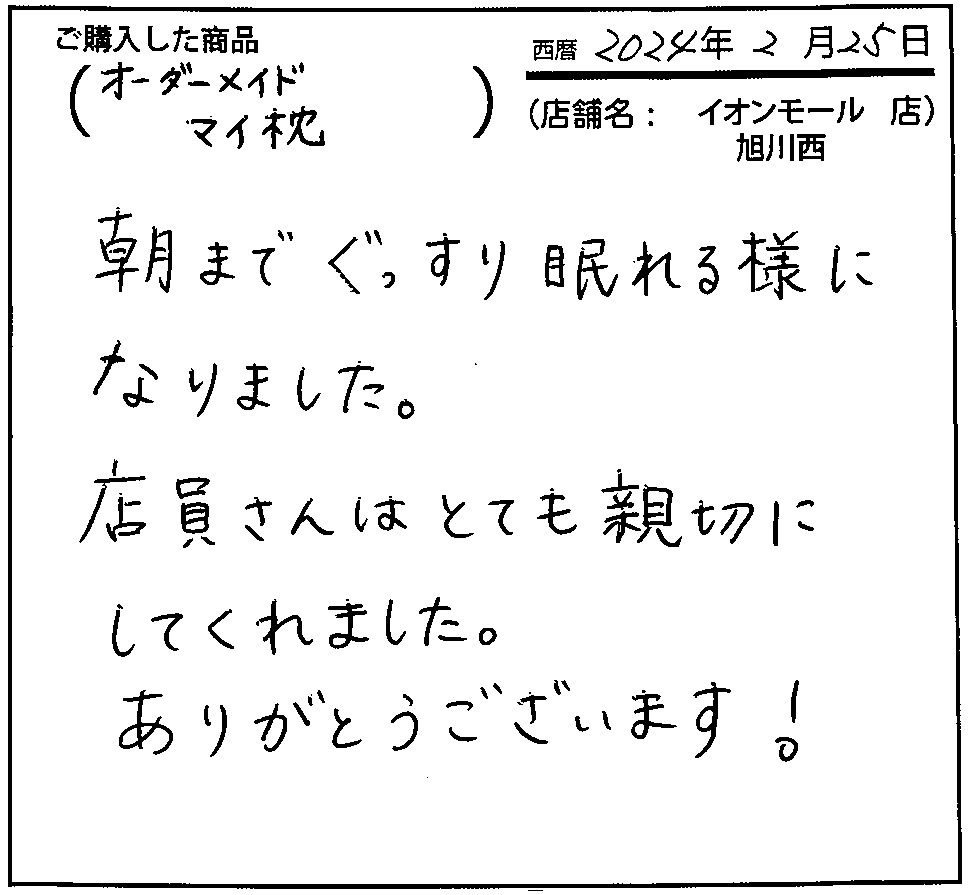 ご購入した商品
(オーダーメイド
マイ枕)
西暦 2024年 2月25日
(店舗名: イオンモール 店)
旭川西
朝までぐっすり眠れる様に
なりました。
店員さんはとても親切に
してくれました。
ありがとうございます!